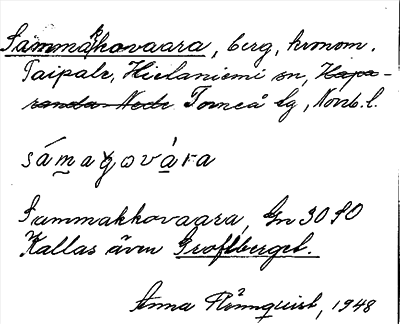 Sammakkovaara, berg, kronom.
Taipale, Hietaniemi sn, ~~Hapa-~~
~~randa Nedr~~ Torneå lg, Norrb. l.
sámaχová̱ra
Summakkovaara, Gn 3090
Kallas även Groftberget.
Anna Rönnquist, 1948